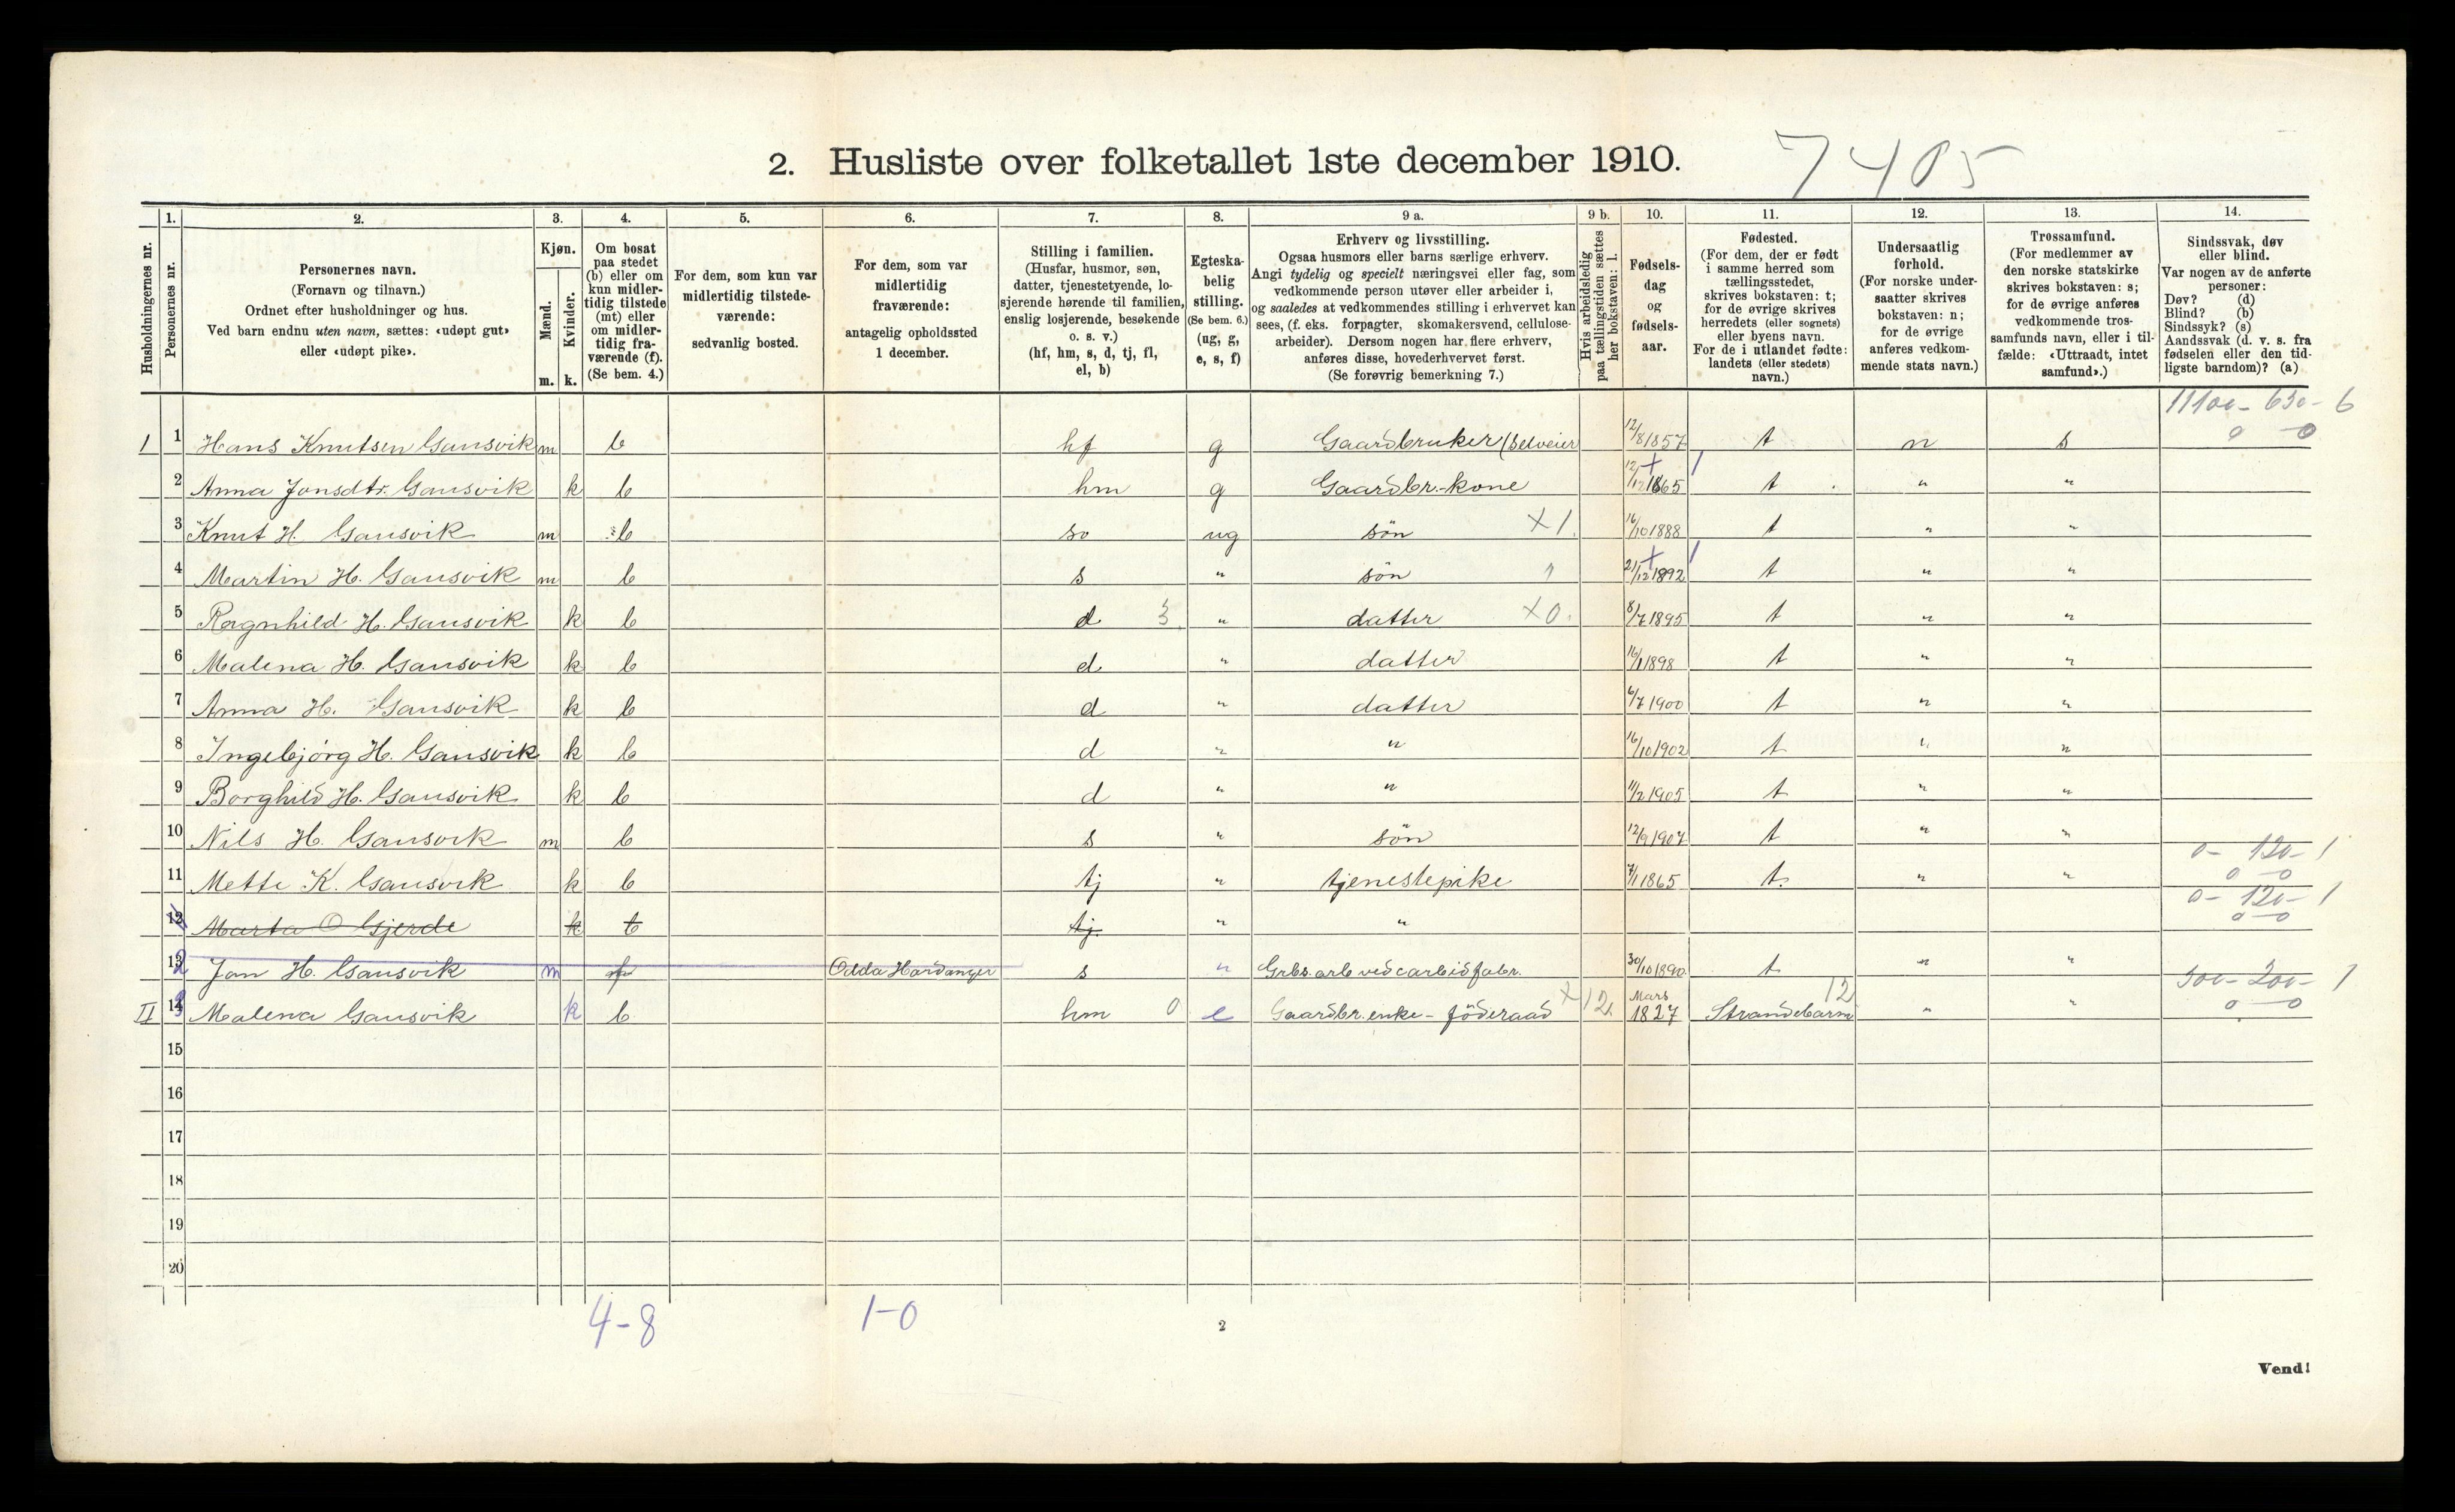 2. Husliste over folketallet 1ste december 1910. 7405
Husholdningernes nr.
1. 2. 3. 4. 5. 6. 7. 8. 9 a. 9 b. 10. 11. 12. 13. 14.
Personernes nr.
Personernes navn.
(Fornavn og tilnavn.)
Ordnet efter husholdninger og hus.
Ved barn endnu uten navn, sættes: «udøpt gut»
eller «udøpt pike».
Kjøn.
Mænd.
Kvinder.
m. k.
Om bosat
paa stedet
(b) eller om
kun midler-
tidig tilstede
(mt) eller
om midler-
tidig fra-
værende (f).
(Se bem. 4.)
For dem, som kun var
midlertidig tilstede-
værende:
sedvanlig bosted.
For dem, som var
midlertidig
fraværende:
antagelig opholdssted
1 december.
Stilling i familien.
(Husfar, husmor, søn,
datter, tjenestetyende, lo-
sjerende hørende til familien,
enslig losjerende, besøkende
o. s. v.)
(hf, hm, s, d, tj, fl,
el, b)
Egteska-
belig
stilling.
(Se bem. 6.)
(ug, g,
e, s, f)
Erhverv og livsstilling.
Ogsaa husmors eller barns særlige erhverv.
Angi tydelig og specielt næringsvei eller fag, som
vedkommende person utøver eller arbeider i,
og saaledes at vedkommendes stilling i erhvervet kan
sees, (f. eks. forpagter, skomakersvend, cellulose-
arbeider). Dersom nogen har flere erhverv,
anføres disse, hovederhvervet først.
(Se forøvrig bemerkning 7.)
Hvis arbeidsledig
paa tællingstiden sættes
her bokstaven: l.
Fødsels-
dag
og
fødsels-
aar.
Fødested.
(For dem, der er født
i samme herred som
tællingsstedet,
skrives bokstaven: t;
for de øvrige skrives
herredets (eller sognets)
eller byens navn.
For de i utlandet fødte:
landets (eller stedets)
navn.)
Undersaatlig
forhold.
(For norske under-
saatter skrives
bokstaven: n;
for de øvrige
anføres vedkom-
mende stats navn.)
Trossamfund.
(For medlemmer av
den norske statskirke
skrives bokstaven: s;
for de øvrige anføres
vedkommende tros-
samfunds navn, eller i til-
fælde: «Uttraadt, intet
samfund».)
Sindssvak, døv
eller blind.
Var nogen av de anførte
personer:
Døv? (d)
Blind? (b)
Sindssyk? (s)
Aandssvak (d. v. s. fra
fødselen eller den tid-
ligste barndom)? (a)
1100 - 630 - 6
0 0
I 1 Hans Knutsen Gausvik m b hf g Gaardbruker (Selveier 12/8 1857 t n s
2 Anna Jonsdtr. Gausvik k b hm g Gaardbr.-kone 12/12 1865 t " "
3 Knut H. Gausvik m b so ug sön X 1. 16/10 1888 t " "
4 Martin H. Gausvik m b s " sön 1 21/12 1892 t " "
5 Ragnhild H. Gausvik k b d 3 " datter X 0. 8/7 1895 t " "
6 Malena H. Gausvik k b d " datter 16/1 1898 t " "
7 Anna H. Gausvik k b d " datter 6/7 1900 t " "
8 Ingebjörg H. Gausvik k b d " " 16/10 1902 t " "
9 Borghild H. Gausvik k b d " " 11/2 1905 t " "
10 Nils H. Gausvik m b s " sön 12/9 1907 t " "
0 - 120 - 1
0 - 0
11 Mette K. Gausvik k b tj " tjenestepike 7/1 1865 t. " "
0 - 120 - 1
0 - 0
12 Marta O Gjerde k b tj. " "
13 Jan H. Gausvik m f Odda Hardanger s " Grbs. arb ved carbidfabr. 30/10 1890 t " "
500 - 200 - 1
0 - 0
II 14 Malena Gausvik k b hm 0 e Gaardbr. enke - föderaad X 12. Mars 1827 Strandebarm 12 " "
15
16
17
18
19
20
4-8 1-0
2
Vend!